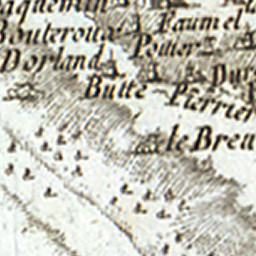 aquemin
Faumel
Bouteroux
Potier
Dorland
Butte
Pierrier
le Breu